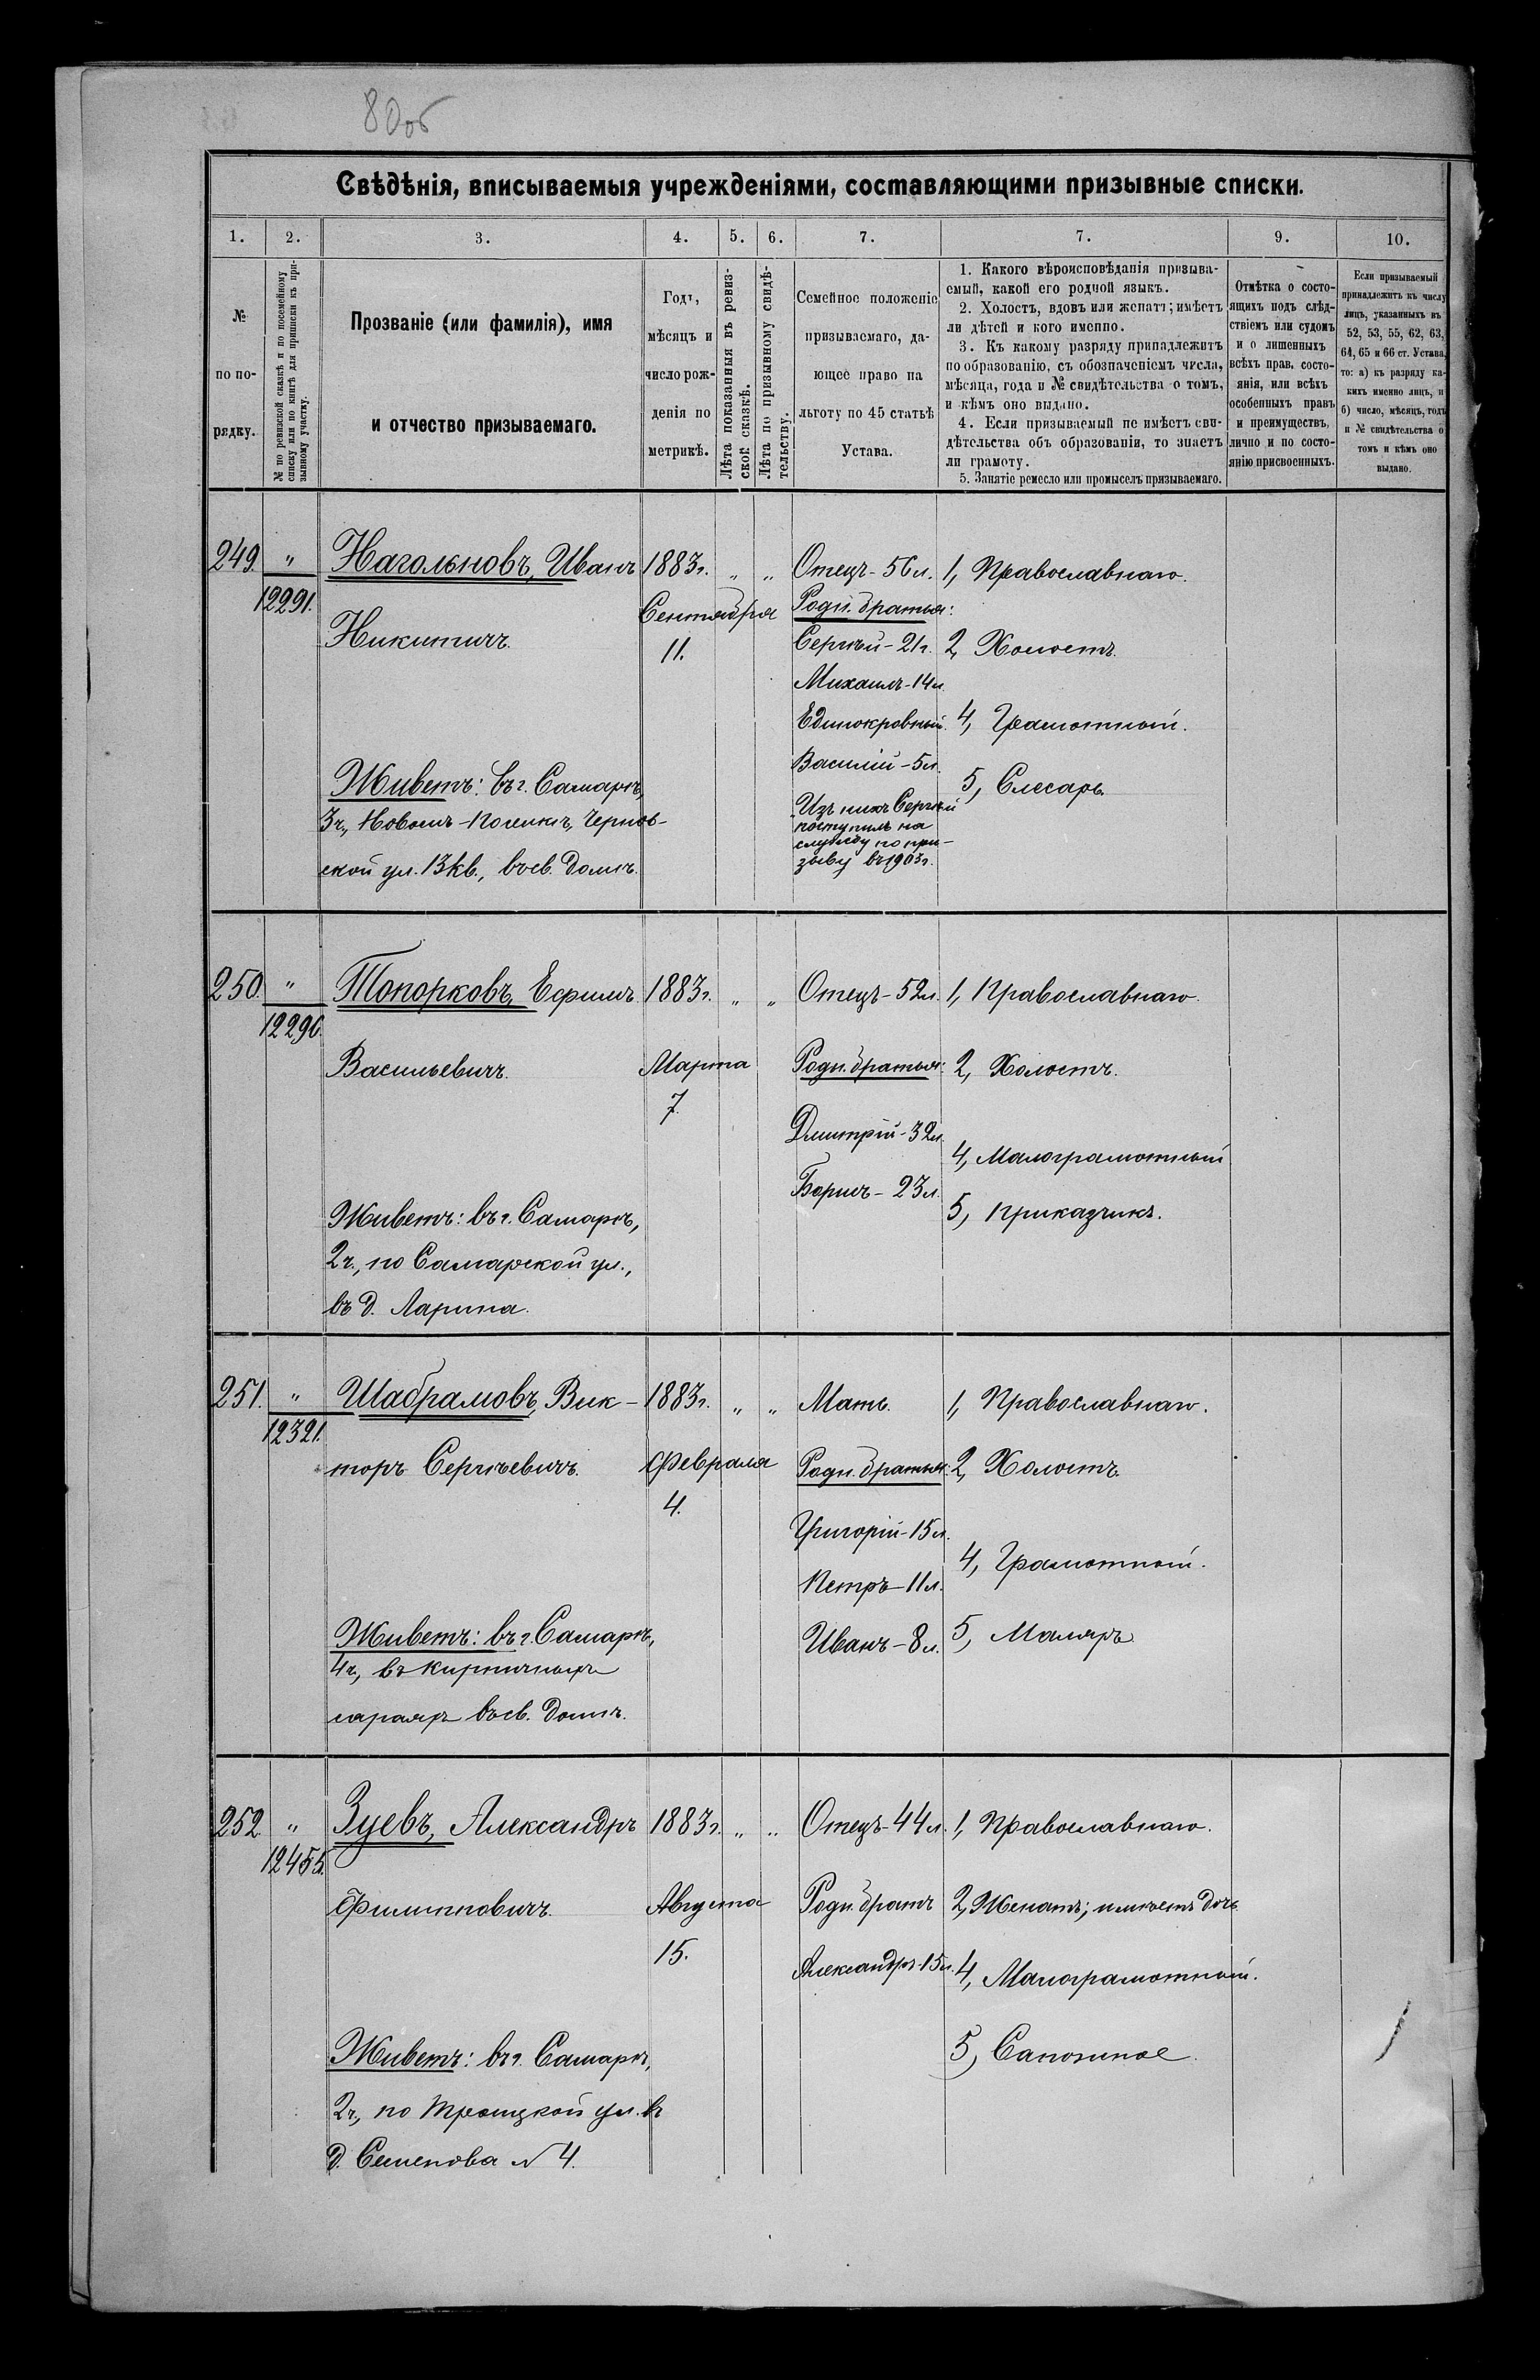 80об
Свѣдѣнія, вписываемыя учрежденіями, составляющими призывные списки.
1. 2. 3. 4. 5. 6. 7. 7. 9. 10.
№
по по-
рядку.
№ по ревизской сказкѣ и по посемейному
списку или по книгѣ для приписки къ при-
зывному участку.
Прозваніе (или фамилія), имя
и отчество призываемаго.
Годъ,
мѣсяцъ и
число рож-
денія по
метрикѣ.
Лѣта показанныя въ ревиз-
ской сказкѣ.
Лѣта по призывному свидѣ-
тельству.
Семейное положеніе
призываемаго, да-
ющее право на
льготу по 45 статьѣ
Устава.
1. Какого вѣроисповѣданія призыва-
емый, какой его родной языкъ.
2. Холостъ, вдовъ или женатъ; имѣетъ
ли дѣтей и кого именно.
3. Къ какому разряду принадлежитъ
по образованію, съ обозначеніемъ числа,
мѣсяца, года и № свидѣтельства о томъ,
и кѣмъ оно выдано.
4. Если призываемый не имѣетъ сви-
дѣтельства объ образованіи, то знаетъ
ли грамоту.
5. Занятіе ремесло или промыселъ призываемаго.
Отмѣтка о состо-
ящихъ подъ слѣд-
ствіемъ или судомъ
и о лишенныхъ
всѣхъ прав. состо-
янія, или всѣхъ
особенныхъ правъ
и преимуществъ,
лично и по состо-
янію присвоенныхъ.
Если призываемый
принадлежитъ къ числу
лицъ, указанныхъ въ
52, 53, 55, 62, 63,
64, 65 и 66 ст. Устава,
то: а) къ разряду ка-
кихъ именно лицъ, и
б) число, мѣсяцъ, годъ
и № свидѣтельства о
томъ и кѣмъ оно
выдано.
249. "
12291.
Нагольновъ, Иванъ
Никитичъ.
Живетъ: въ г. Самарѣ,
3 ч., Новомъ-Поселкѣ, Чернов-
ской ул. 13 кв., въ св. домѣ.
1883 г. " "
Сентября
11.
Отецъ - 56 л.
Родн. братья:
Сергѣй - 21 г.
Михаилъ - 14 л.
Единокровный.
Василій - 5 л.
Изъ нихъ Сергѣй
поступилъ на
службу по при-
зыву въ 1903 г.
1, Православнаго.
2, Холостъ.
4, Грамотный.
5, Слесарь.
250. "
12296.
Топорковъ, Ефимъ
Васильевичъ.
Живетъ: въ г. Самарѣ,
2 ч., по Самарской ул.,
въ д. Ларина.
1883 г. " "
Марта
7.
Отецъ - 52 л.
Родн. братья:
Дмитрій - 32 л.
Борисъ - 23 л.
1, Православнаго.
2, Холостъ.
4, Малограмотный
5, Приказчикъ.
251. "
12321.
Шабрамовъ, Вик-
торъ Сергѣевичъ.
Живетъ: въ г. Самарѣ,
4 ч., въ кирпичныхъ
сараяхъ въ св. домѣ.
1883 г. " "
Февраля
4.
Мать.
Родн. братья:
Григорій - 15 л.
Петръ - 11 л.
Иванъ - 8 л.
1, Православнаго.
2, Холостъ.
4, Грамотный.
5, Маляръ.
252. "
12455.
Зуевъ, Александръ
Филипповичъ.
Живетъ: въ г. Самарѣ,
2 ч., по Троицкой ул. въ
д. Семенова № 4.
1883 г. " "
Августа
15.
Отецъ - 44 л.
Родн. братъ
Александръ - 15 л.
1, Православнаго.
2, Женатъ; имѣетъ дочь
4, Малограмотный.
5, Сапожное.